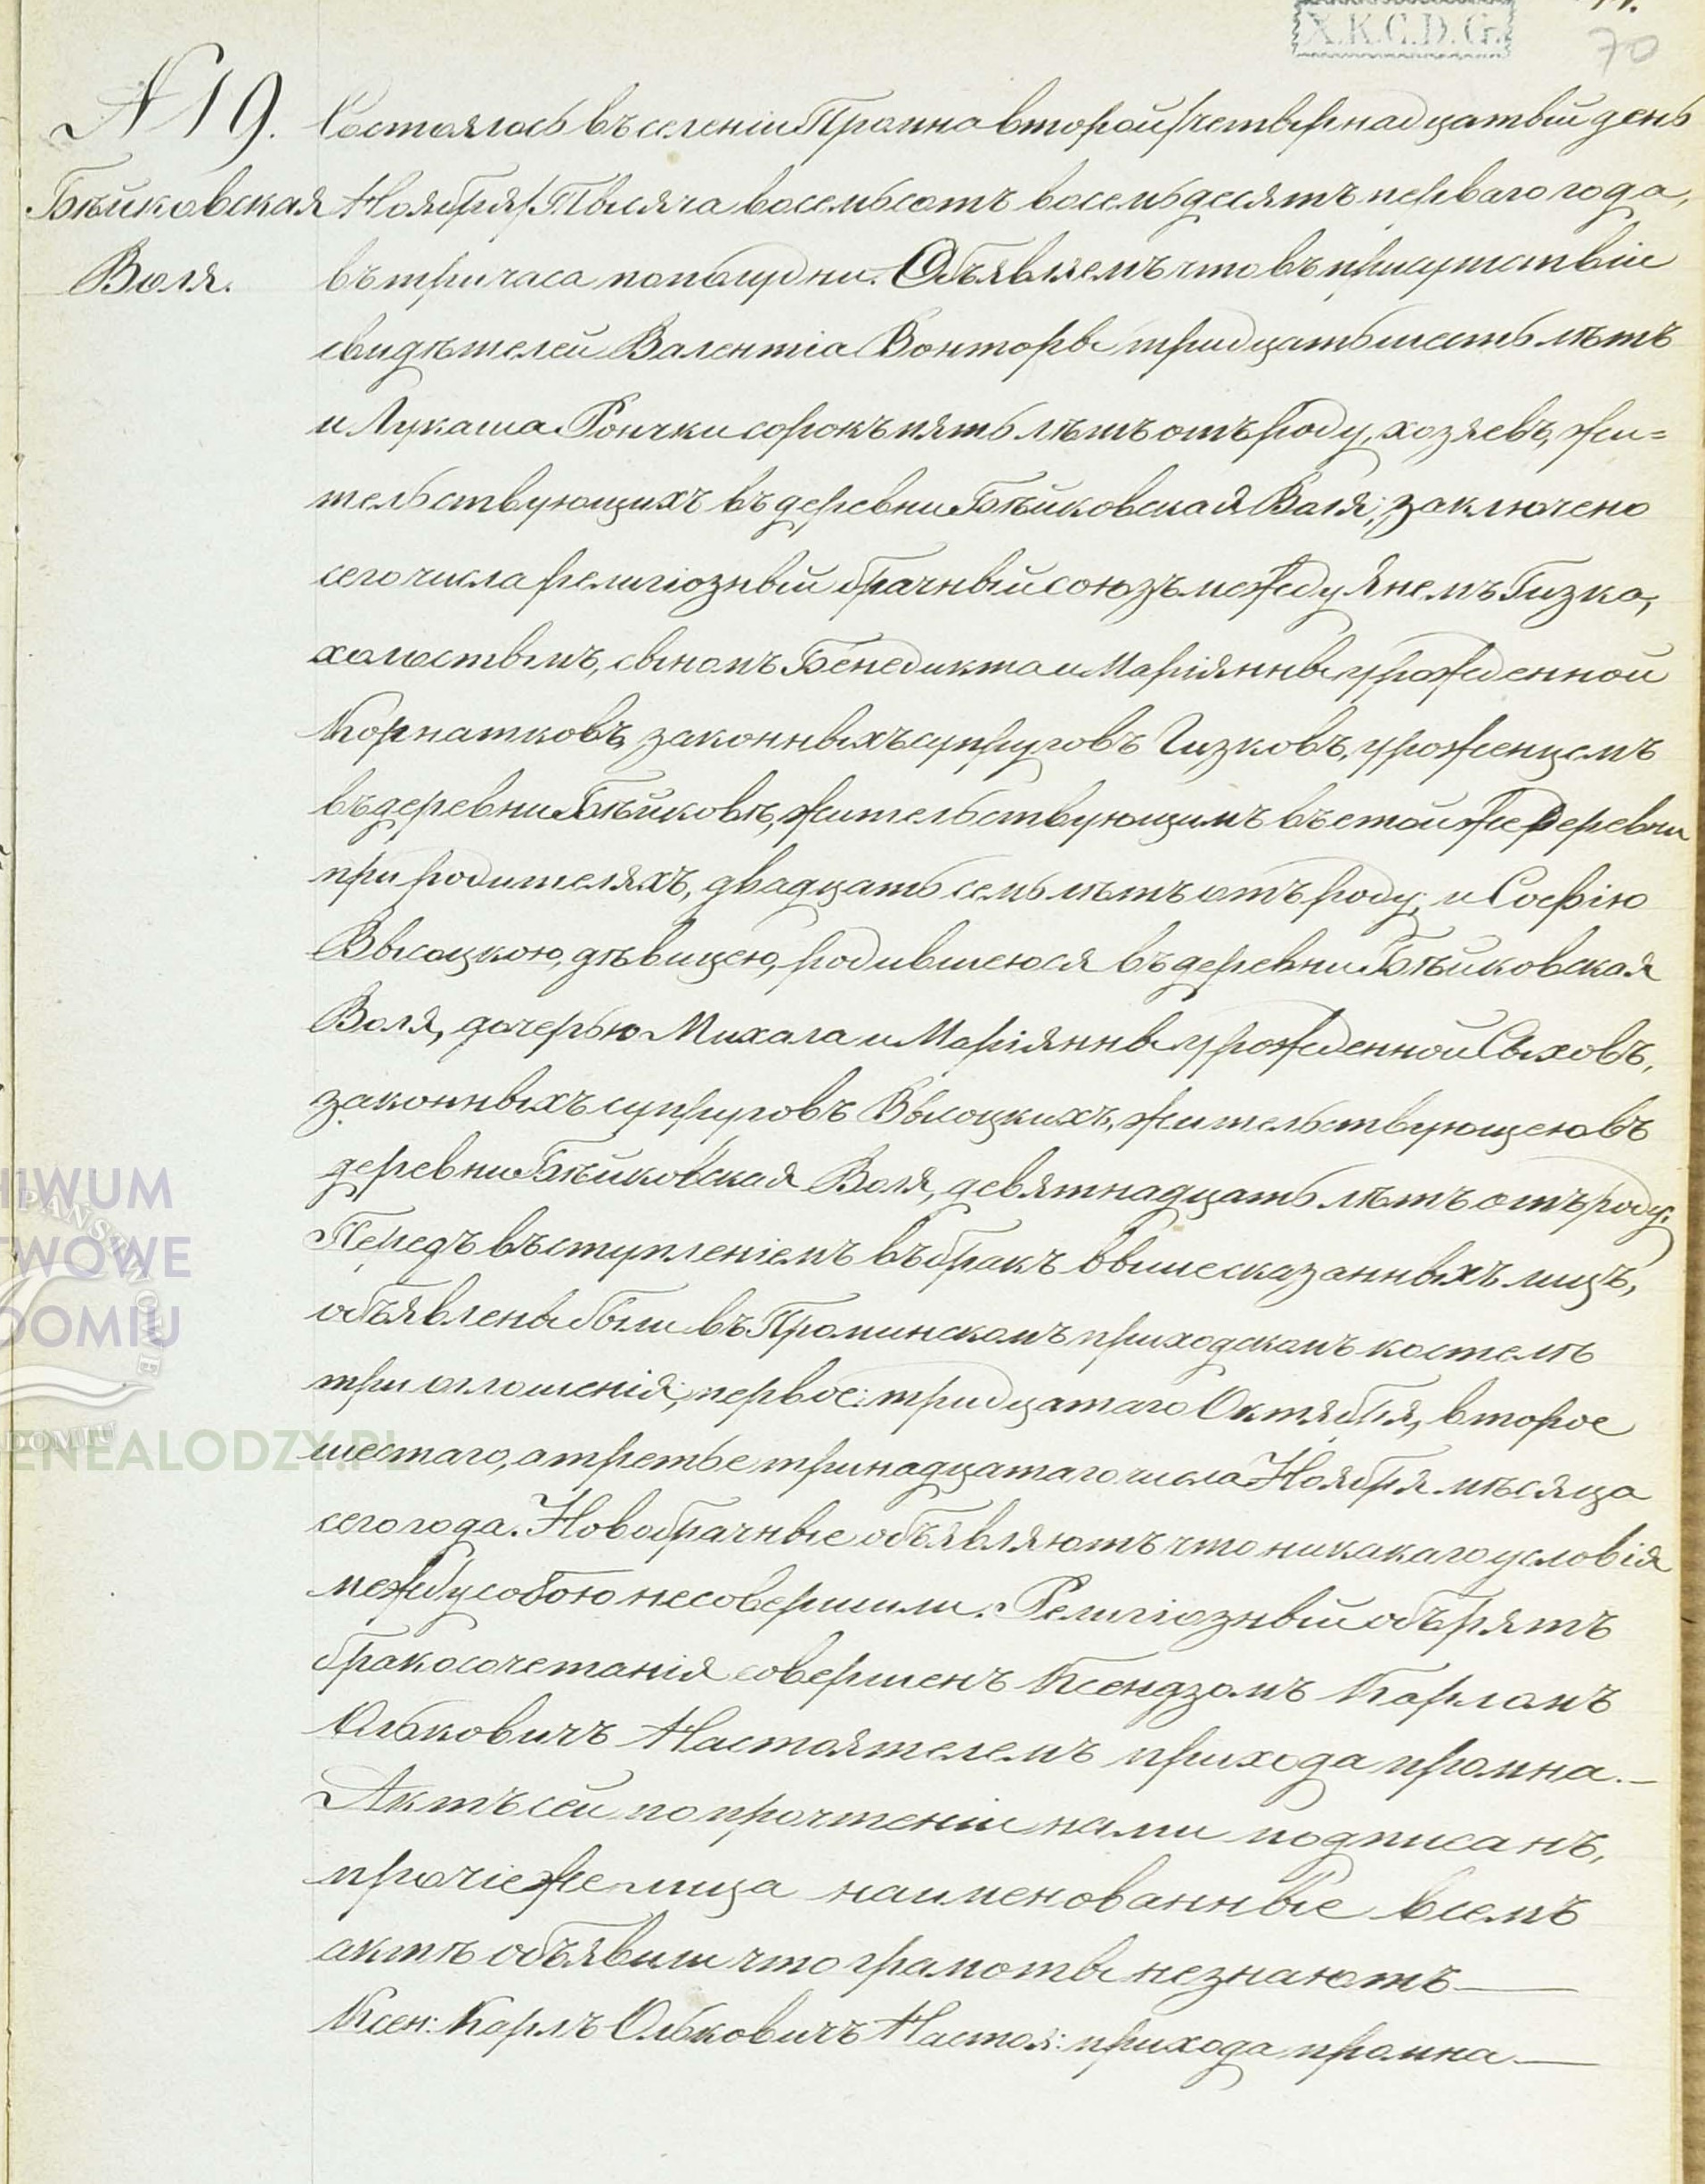 X.K.C.D.G.
70
N 19. Состоялось въ селенiи Промна второй/четырнадцатый день
Бѣйковская Ноября/ Тысяча восемьсотъ восемьдесятъ перваго года,
Воля. въ три часа пополудни. Объявляемъ что въ присутствiи
свидѣтелей Валентiа Вонторы тридцать шесть лѣтъ
и Лукаша Рончки сорокъ пять лѣтъ отъ роду, хозяевъ, жи=
тельствующихъ въ деревни Бѣйковская Воля; заключено
сего числа религiозный брачный союзъ между Янемъ Гизка,
холостымъ, сыномъ Бенедикта и Марiянны урожденной
Корнатковъ, законныхъ супруговъ Гизковъ, уроженцемъ
въ деревни Бѣйковъ, жительствующимъ въ етой же деревни
при родителяхъ, двадцать семь лѣтъ отъ роду; и Софiю
Высоцкою, дѣвицею, родившеюся въ деревни Бѣйковская
Воля, дочерью Михала и Марiянны урожденной Сыховъ,
законныхъ супруговъ Высоцкихъ, жительствующею въ
деревни Бѣйковская Воля, девятнадцать лѣтъ отъ роду.
Передъ въступленiемъ въ бракъ ввышесказанныхъ лицъ,
объявлены были въ Проминскомъ приходскомъ костелѣ
три оглошенiя; первое: тридцатаго Октября, второе
шестаго, а третье тринадцатаго числа Ноября мѣсяца
сего года. Новобрачные объявляютъ что никакаго условiя
между собою несовершили. Религiозный обърятъ
бракосочетанiя совершенъ Ксендзомъ Карломъ
Олбковичъ Настоятелемъ прихода промна.—
Актъ сей по прочтенiи нами подписанъ,
прочiе же лица наименованные всемъ
актѣ объявили что грамоты незнаютъ—
Ксен: Карлъ Олбковичъ Настоя: прихода промна—
HIWUM
TWOWE
DOMIU
ENEALODZY.PL